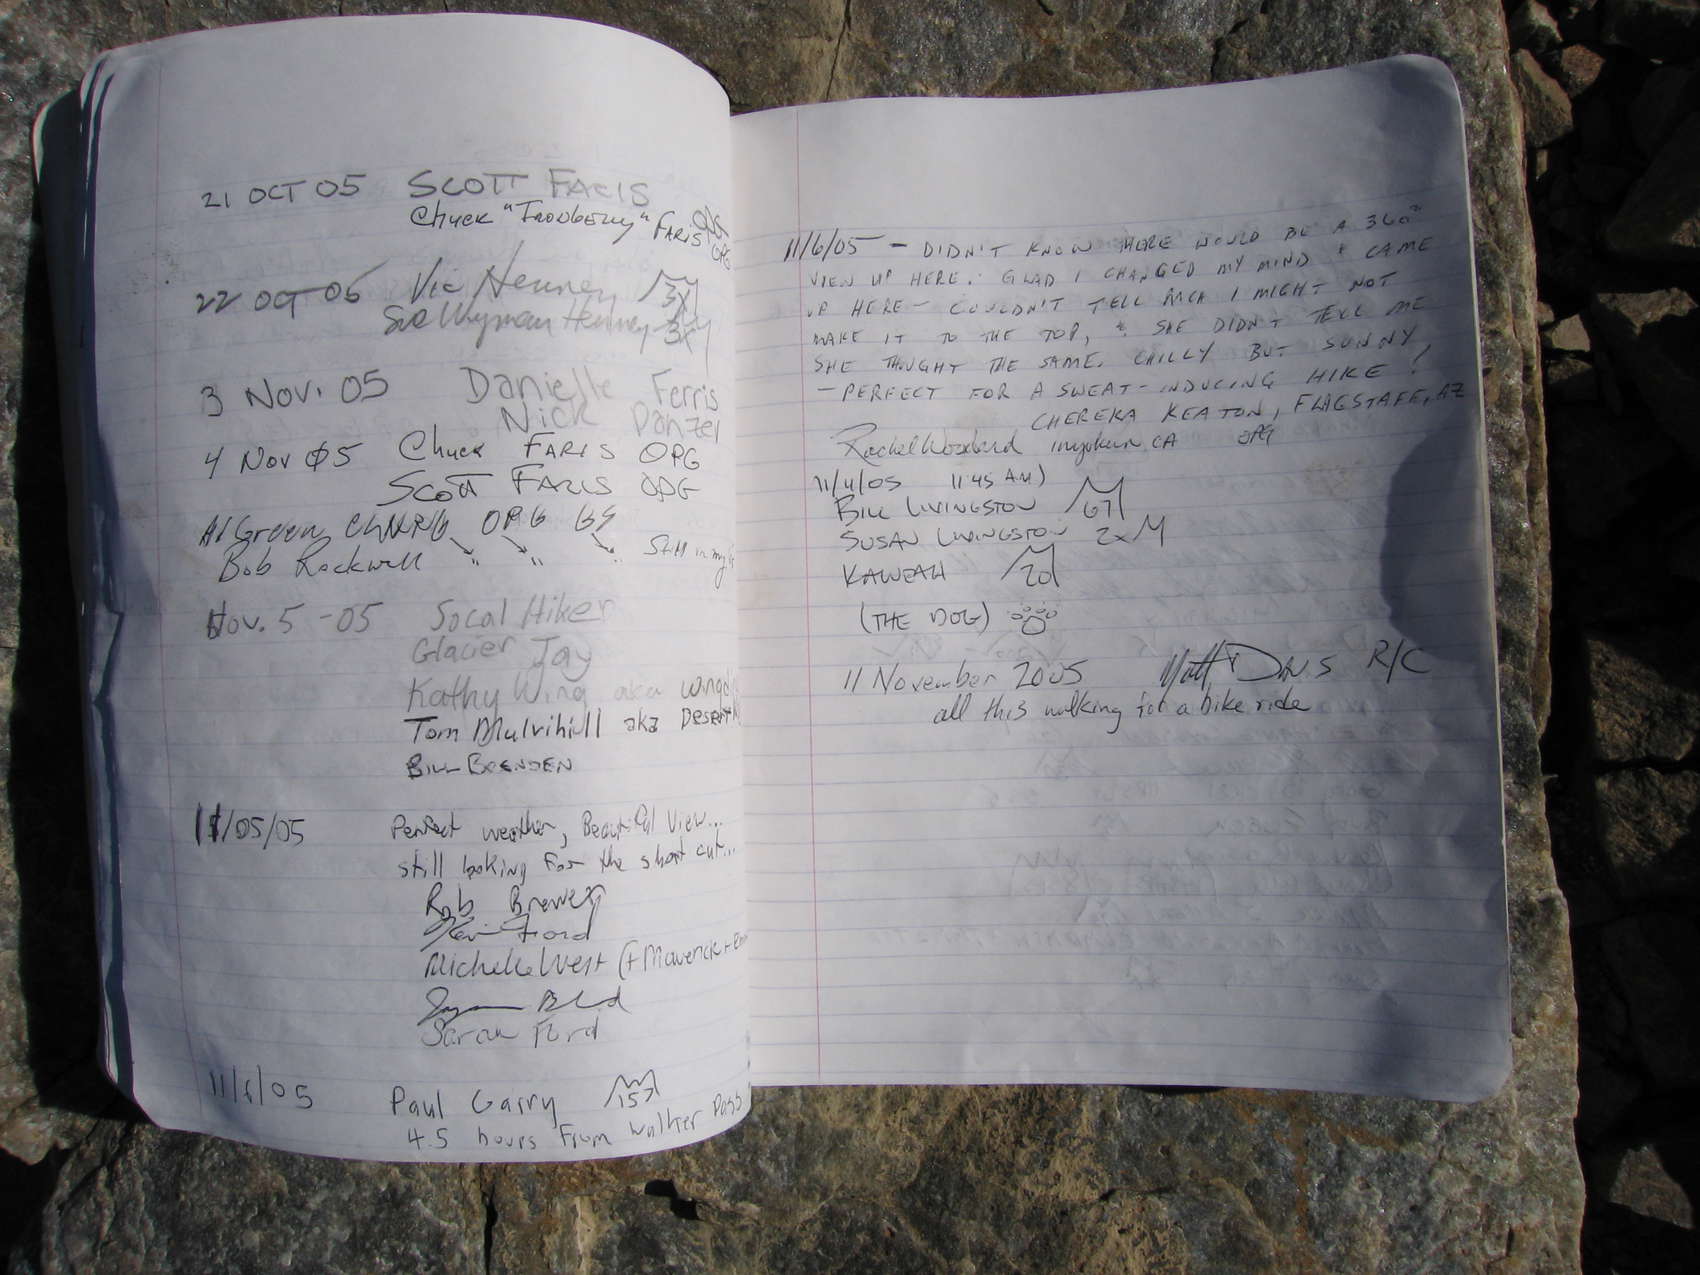 21 OCT 05 SCOTT FARIS
Chuck " " FARIS OPG
22 OCT 05 Vic Henney 3X
Sue Wyman Henney 3X
3 Nov. 05 Danielle Ferris
Nick Danzer
4 Nov 05 Chuck FARIS OPG
SCOTT FARIS OPG
Al Green OPG
Bob Rockwell " " " Still in my
Nov. 5 -05 Socal Hiker
Glacier Jay
Kathy Wing aka
Tom Mulvihill aka Desert
BILL
11/05/05 Perfect weather, Beautiful View...
still looking for the short cut...
Rob Brewer
Kevin Ford
Michelle West (+ Maverick +
Sarah Ford
11/6/05 Paul Garry 153
4.5 hours from Walker Pass
11/6/05 - DIDN'T KNOW THERE WOULD BE A 360°
VIEW UP HERE. GLAD I CHANGED MY MIND & CAME
UP HERE - COULDN'T TELL RACH I MIGHT NOT
MAKE IT TO THE TOP, & SHE DIDN'T TELL ME
SHE THOUGHT THE SAME. CHILLY BUT SUNNY
- PERFECT FOR A SWEAT-INDUCING HIKE!
CHEREKA KEATON, FLAGSTAFF, AZ
Rachel Woodard Inyokern, CA OPG
11/4/05 11:45 AM)
BILL LIVINGSTON 67
SUSAN LIVINGSTON 2x
KAWEAH 20
(THE DOG)
11 November 2005 Matt R/C
all this walking for a bike ride